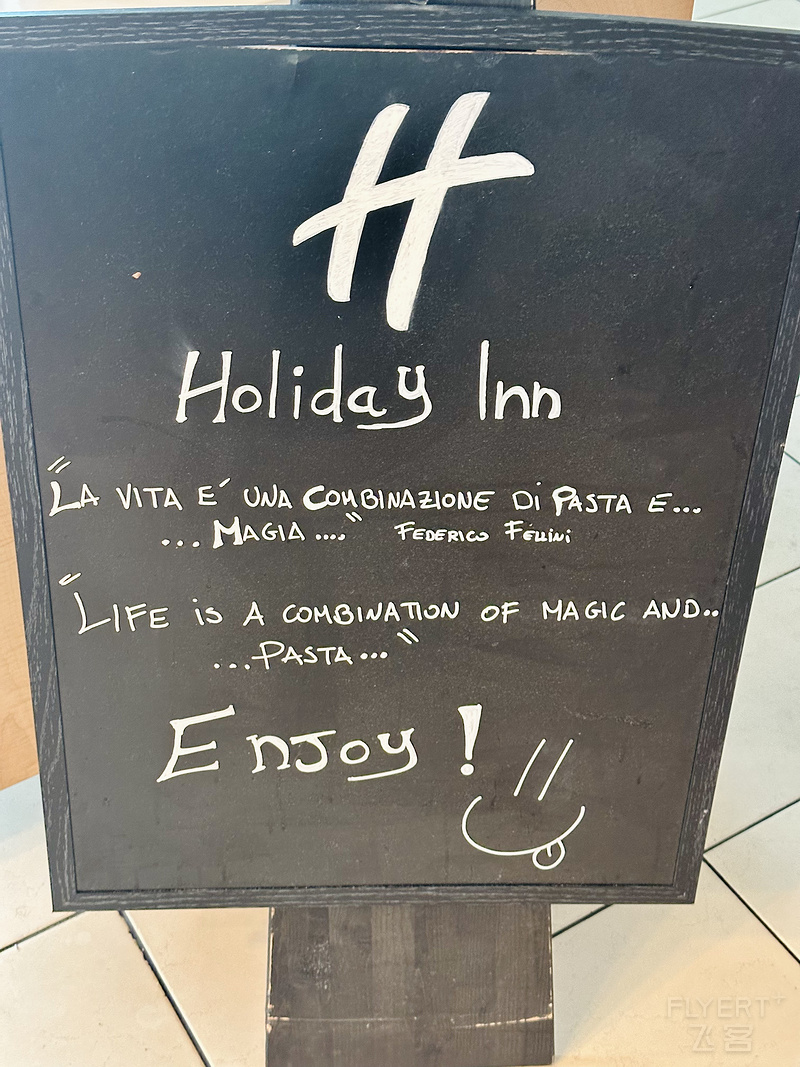 H
Holiday Inn
"LA VITA E´ UNA COMBINAZIONE Di PASTA E...
... MAGIA ...." FEDERICO FELLINI
"LIFE iS A COMBINATION OF MAGIC AND..
...PASTA..."
ENJOY !
FLYERT
飞客